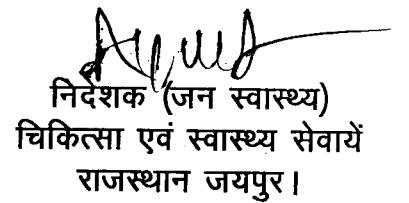 निदेशक (जन स्वास्थ्य)
चिकित्सा एवं स्वास्थ्य सेवायें
राजस्थान जयपुर।